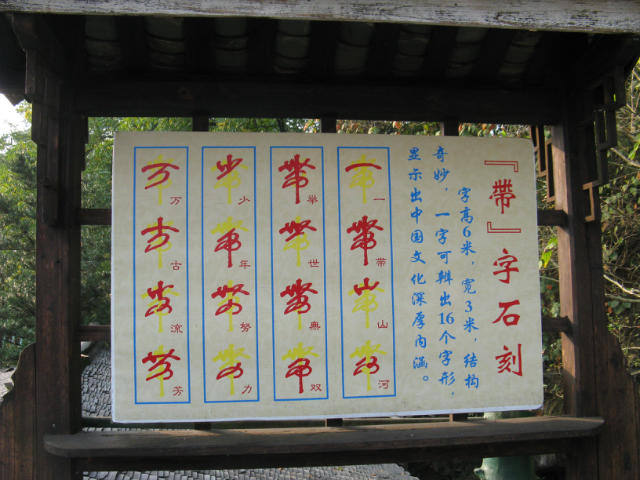 『帶』字石刻
字高6米，宽3米，结构
奇妙，一字可辨出16个字形，
显示出中国文化深厚内涵。
一带山河
举世無双
少年努力
万古流芳